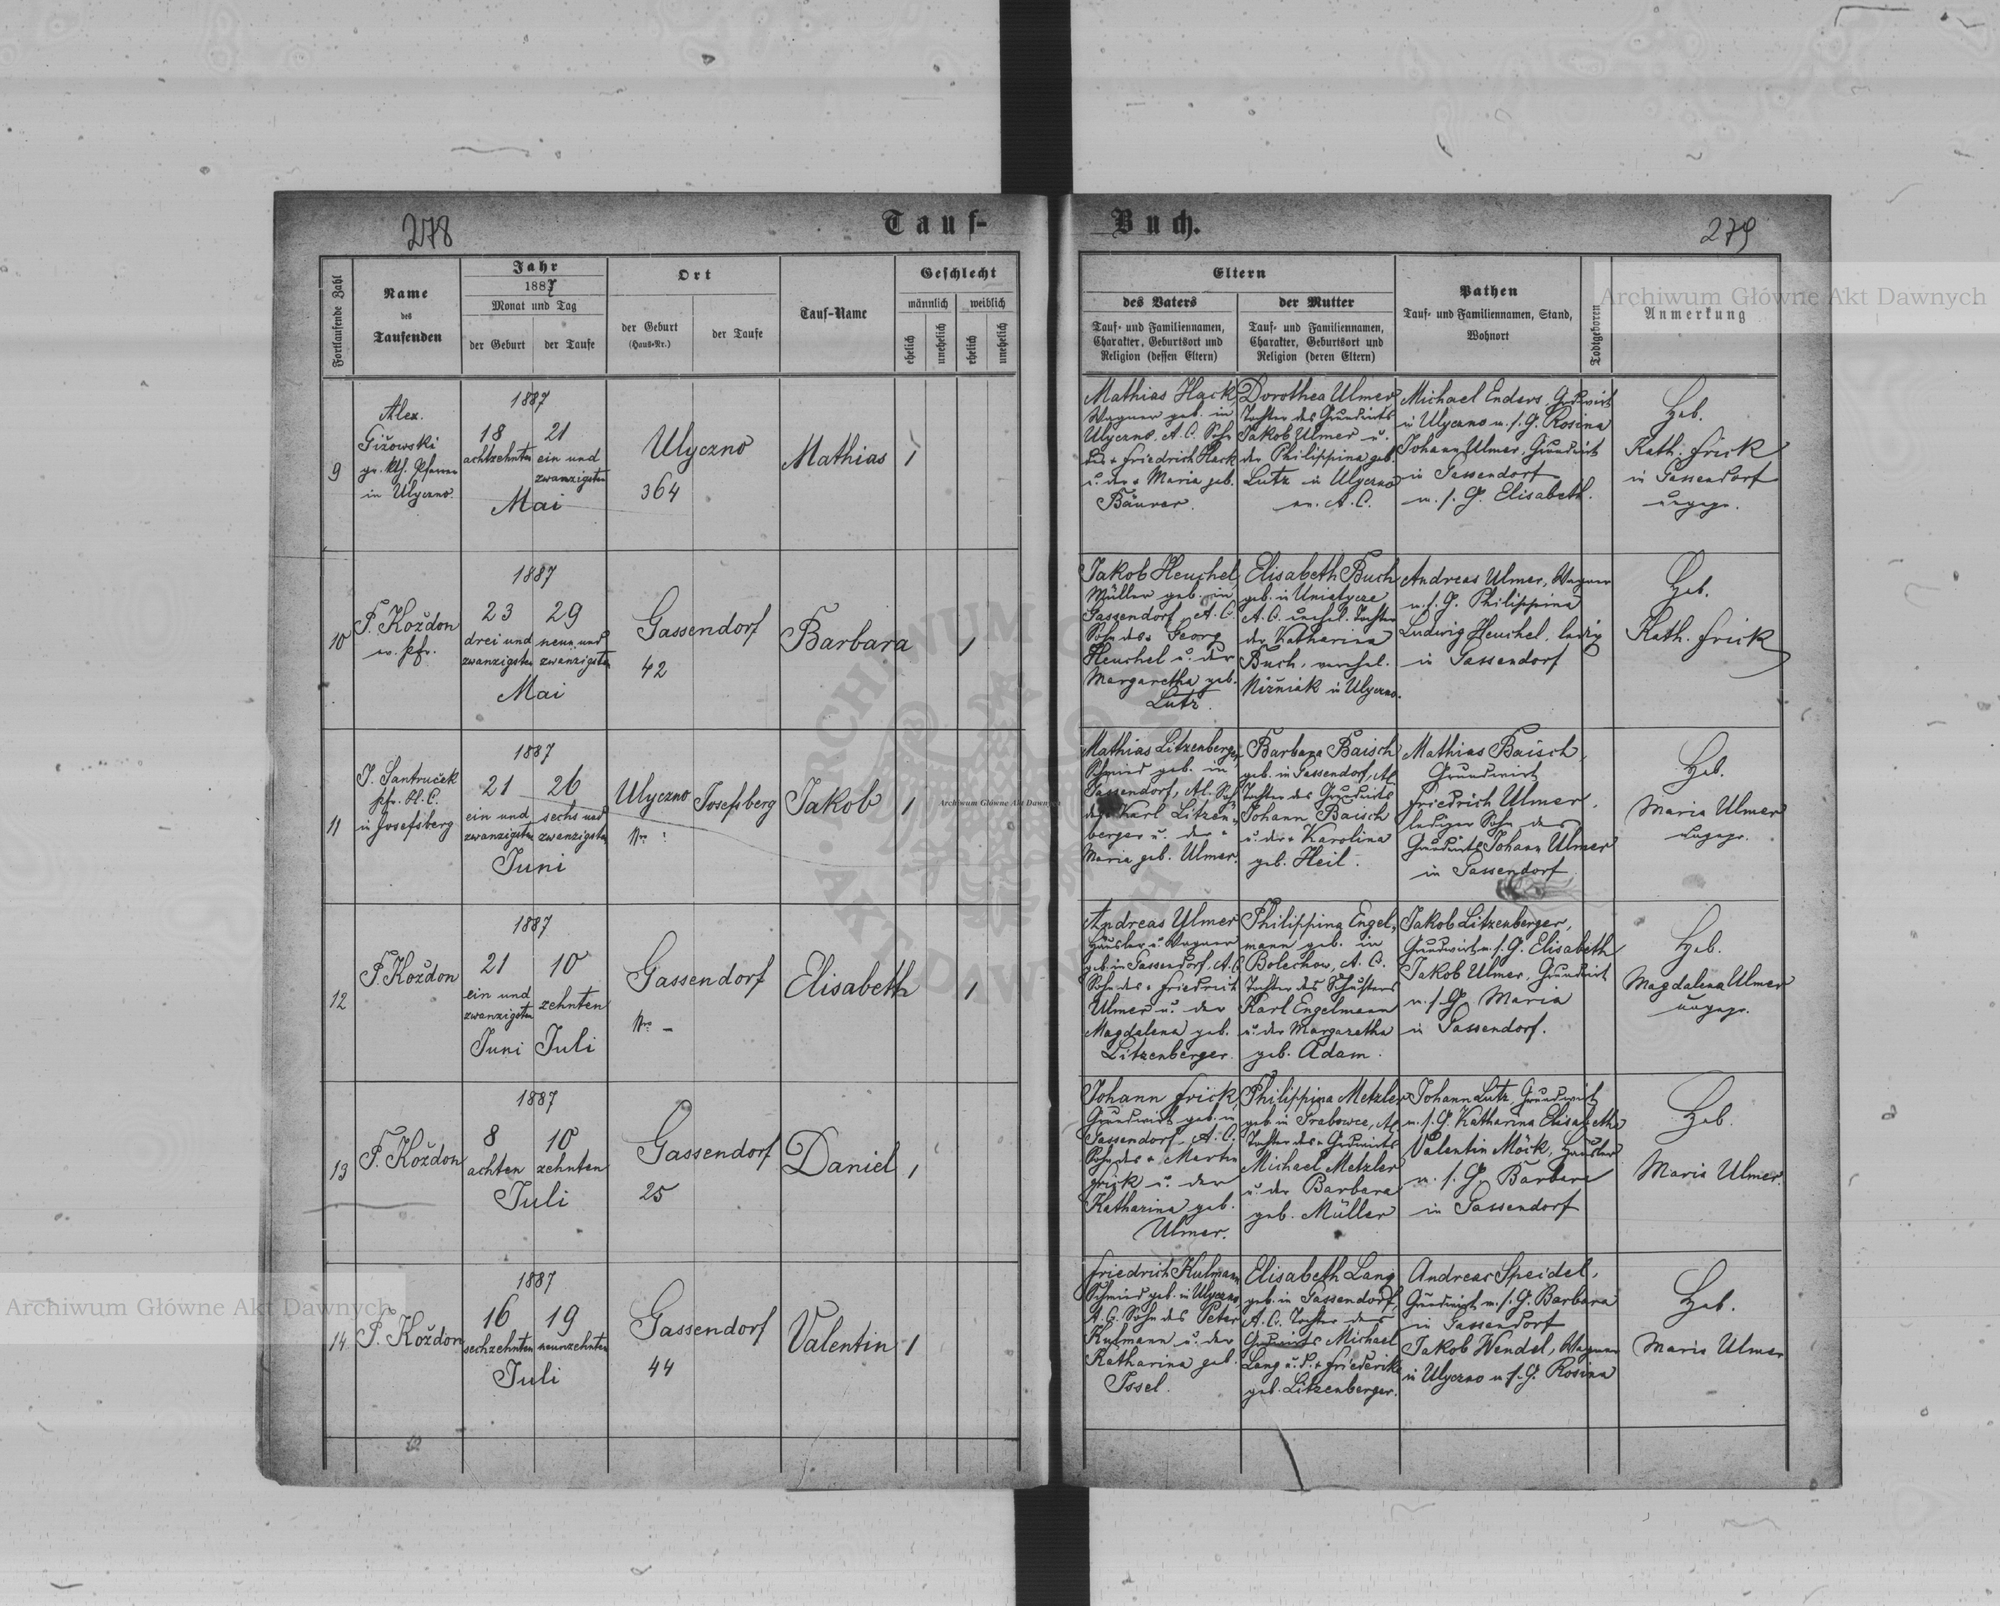 278
Tauf-
Buch.
279
Fortlaufende Zahl
Name
des
Taufenden
Jahr
1887
Monat und Tag
der Geburt
der Taufe
Ort
der Geburt
(Haus-Nr.)
der Taufe
Tauf-Name
Geschlecht
männlich
weiblich
ehelich
unehelich
ehelich
unehelich
Eltern
des Vaters
Tauf- und Familiennamen,
Charakter, Geburtsort und
Religion (dessen Eltern)
der Mutter
Tauf- und Familiennamen,
Charakter, Geburtsort und
Religion (deren Eltern)
Pathen
Tauf- und Familiennamen, Stand,
Wohnort
Todtgeboren
Anmerkung
Archiwum Główne Akt Dawnych
9
Alex.
Giżowski
gr. kth. Pfarrer
in Ulyczno
1887
18
achtzehnten
21
ein und
zwanzigsten
Mai
Ulyczno
364
Mathias
1
Mathias Hack
Wagner geb. in
Ulyczno, A. C. Sohn
des + Friedrich Hack
u. der + Maria geb.
Bäurer.
Dorothea Ulmer
Tochter des Grundwirts
Jakob Ulmer u.
der Philippina geb.
Lutz in Ulyczno
ev. A. C.
Michael Enders, Grdwirt
in Ulyczno u. s. G. Rosina
Johann Ulmer, Grundwirt
in Gassendorf
u. s. G. Elisabeth.
Heb.
Kath. Frick
in Gassendorf
ungepr.
10
F. Koždon
ev. Pfr.
1887
23
drei und
zwanzigsten
29
neun und
zwanzigsten
Mai
Gassendorf
42
Barbara
1
Jakob Heuchel
Müller geb. in
Gassendorf, A. C.
Sohn des + Georg
Heuchel u. der
Margaretha geb.
Lutz.
Elisabeth Buch
geb. in Uniatycze
A. C. unehel. Tochter
der Katharina
Buch, verehel.
Nižniak in Ulyczno.
Andreas Ulmer, Wagner
u. s. G. Philippina
Ludwig Heuchel, ledig
in Gassendorf
Heb.
Kath. Frick
11
J. Santruček
Pfr. H. C.
in Josefsberg
1887
21
ein und
zwanzigsten
26
sechs und
zwanzigsten
Juni
Ulyczno
Nro :
Josefsberg
Jakob
1
Mathias Litzenberger,
Schmied geb. in
Gassendorf, AC. Sohn
des + Karl Litzen-
berger u. der +
Maria geb. Ulmer.
Barbara Baisch
geb. in Gassendorf, AC
Tochter des Grundwirts
Johann Baisch
u. der + Karolina
geb. Heil.
Mathias Baisch,
Grundwirt
Friedrich Ulmer,
lediger Sohn des
Grundwirts Johann Ulmer
in Gassendorf
Heb.
Maria Ulmer
ungepr.
Archiwum Główne Akt Dawnych
12
F. Koždon
1887
21
ein und
zwanzigsten
Juni
10
zehnten
Juli
Gassendorf
Nro –
Elisabeth
1
Andreas Ulmer
Häusler u. Wagner
geb. in Gassendorf, A. C.
Sohn des + Friedrich
Ulmer u. der
Magdalena geb.
Litzenberger.
Philippina Engel-
mann geb. in
Bolechow, A. C.
Tochter des Schusters
Karl Engelmann
u. der Margaretha
geb. Adam.
Jakob Litzenberger,
Grundwirt u. s. G. Elisabeth
Jakob Ulmer, Grundwirt
u. s. G. Maria
in Gassendorf.
Heb.
Magdalena Ulmer
ungepr.
13
F. Koždon
1887
8
achten
10
zehnten
Juli
Gassendorf
25
Daniel
1
Johann Frick,
Grundwirt geb. in
Gassendorf, A. C.
Sohn des + Martin
Frick u. der
Katharina geb.
Ulmer.
Philippina Metzler
geb. in Grabowce, AC
Tochter des + Grdwirts
Michael Metzler
u. der Barbara
geb. Müller
Johann Lutz, Grundwirt
u. s. G. Katharina Elisabetha
Valentin Möck, Häusler
u. s. G. Barbara
in Gassendorf
Heb.
Maria Ulmer.
14
F. Koždon
1887
16
sechzehnten
19
neunzehnten
Juli
Gassendorf
44
Valentin
1
Friedrich Kulmann
Schmied geb. in Ulyczno
A. C. Sohn des Peter
Kulmann u. der
Katharina geb.
Issel.
Elisabeth Lang
geb. in Gassendorf,
A. C. Tochter des
Grdwirts Michael
Lang u. d. + Friederike
geb. Litzenberger.
Andreas Speidel,
Grundwirt u. s. G. Barbara
in Gassendorf
Jakob Wendel, Wagner
in Ulyczno u. s. G. Rosina
Heb.
Maria Ulmer
Archiwum Główne Akt Dawnych